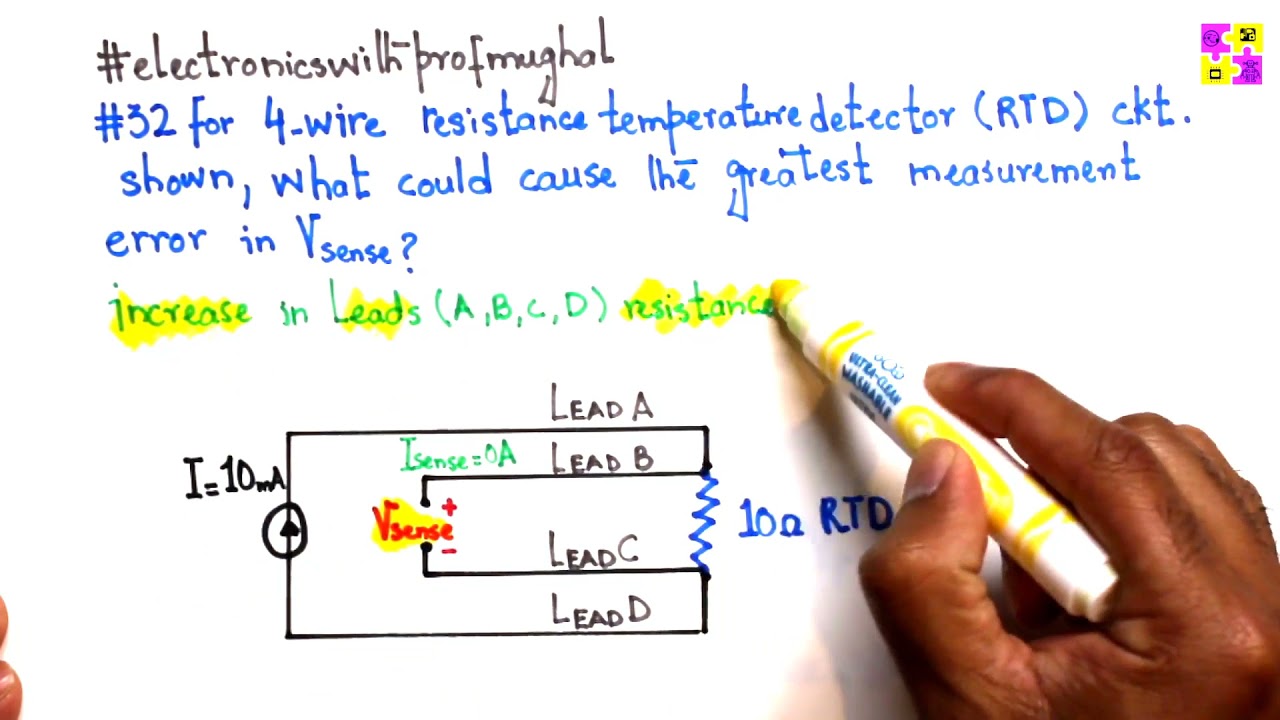 #electronicswithprofmughal
#32 for 4-wire resistance temperature detector (RTD) ckt.
shown, what could cause the greatest measurement
error in Vsense?
increase in Leads (A,B,C,D) resistance
LEAD A
Isense=0A LEAD B
I=10mA
+
Vsense
-
10Ω RTD
LEAD C
LEAD D
ULTRA-CLEAN
WASHABLE